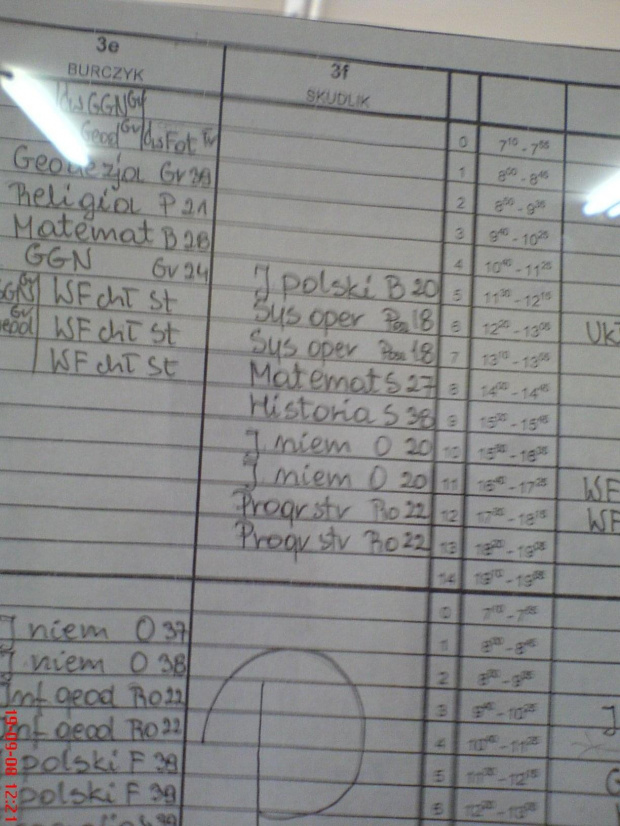 3e
BURCZYK
3f
SKUDLIK
dwGGN Gv
Geod Gv/dwFot Tw
Geodezja Gv 39
Religia P 21
Matemat B 28
GGN Gv 24
WF chT St
WF chT St
WF chT St
J polski B 20
Sys oper 18
Sys oper 18
Matemat S 27
Historia S 38
J. niem O 20
J niem O 20
Progr str Ro 22
Progr str Ro 22
0 7¹⁰ - 7⁵⁵
1 8⁰⁰ - 8⁴⁵
2 8⁵⁰ - 9³⁵
3 9⁴⁰ - 10²⁵
4 10⁴⁰ - 11²⁵
5 11³⁰ - 12¹⁵
6 12²⁰ - 13⁰⁵
7
8 14⁰⁰ - 14⁴⁵
9
10
11 16⁴⁰ - 17²⁵
12 17³⁰ - 18¹⁵
13 18²⁰ - 19⁰⁵
14 19¹⁰ - 19⁵⁵
WF
WF
J niem O 37
J niem O 38
Inf geod Ro 22
Inf geod Ro 22
polski F 39
polski F 39
P
0 7¹⁰ - 7⁵⁵
1
2 8⁵⁰ - 9³⁵
3 9⁴⁰ - 10²⁵
4 10⁴⁰ - 11²⁵
5 11³⁰ - 12¹⁵
6 12²⁰ - 13⁰⁵
J
19-09-08 12:21